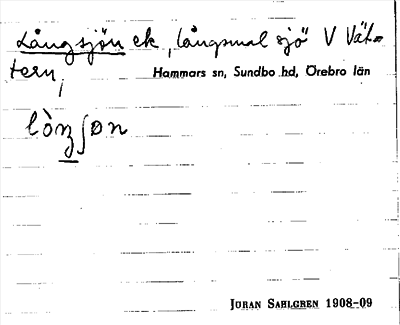 Långsjön ek, långsmal sjö V Vät=
tern,
Hammars sn, Sundbo hd, Örebro län
lòŋʃøn
JÖRAN SAHLGREN 1908-09